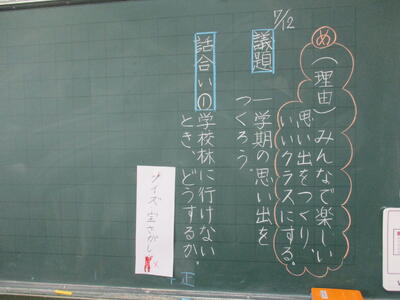 7/12
め（理由）みんなで楽しい
思い出をつくり
いいクラスにする。
議題
一学期の思い出を
つくろう。
話合い①学校林に行けない
とき、どうするか。
クイズ 宝さがし
正